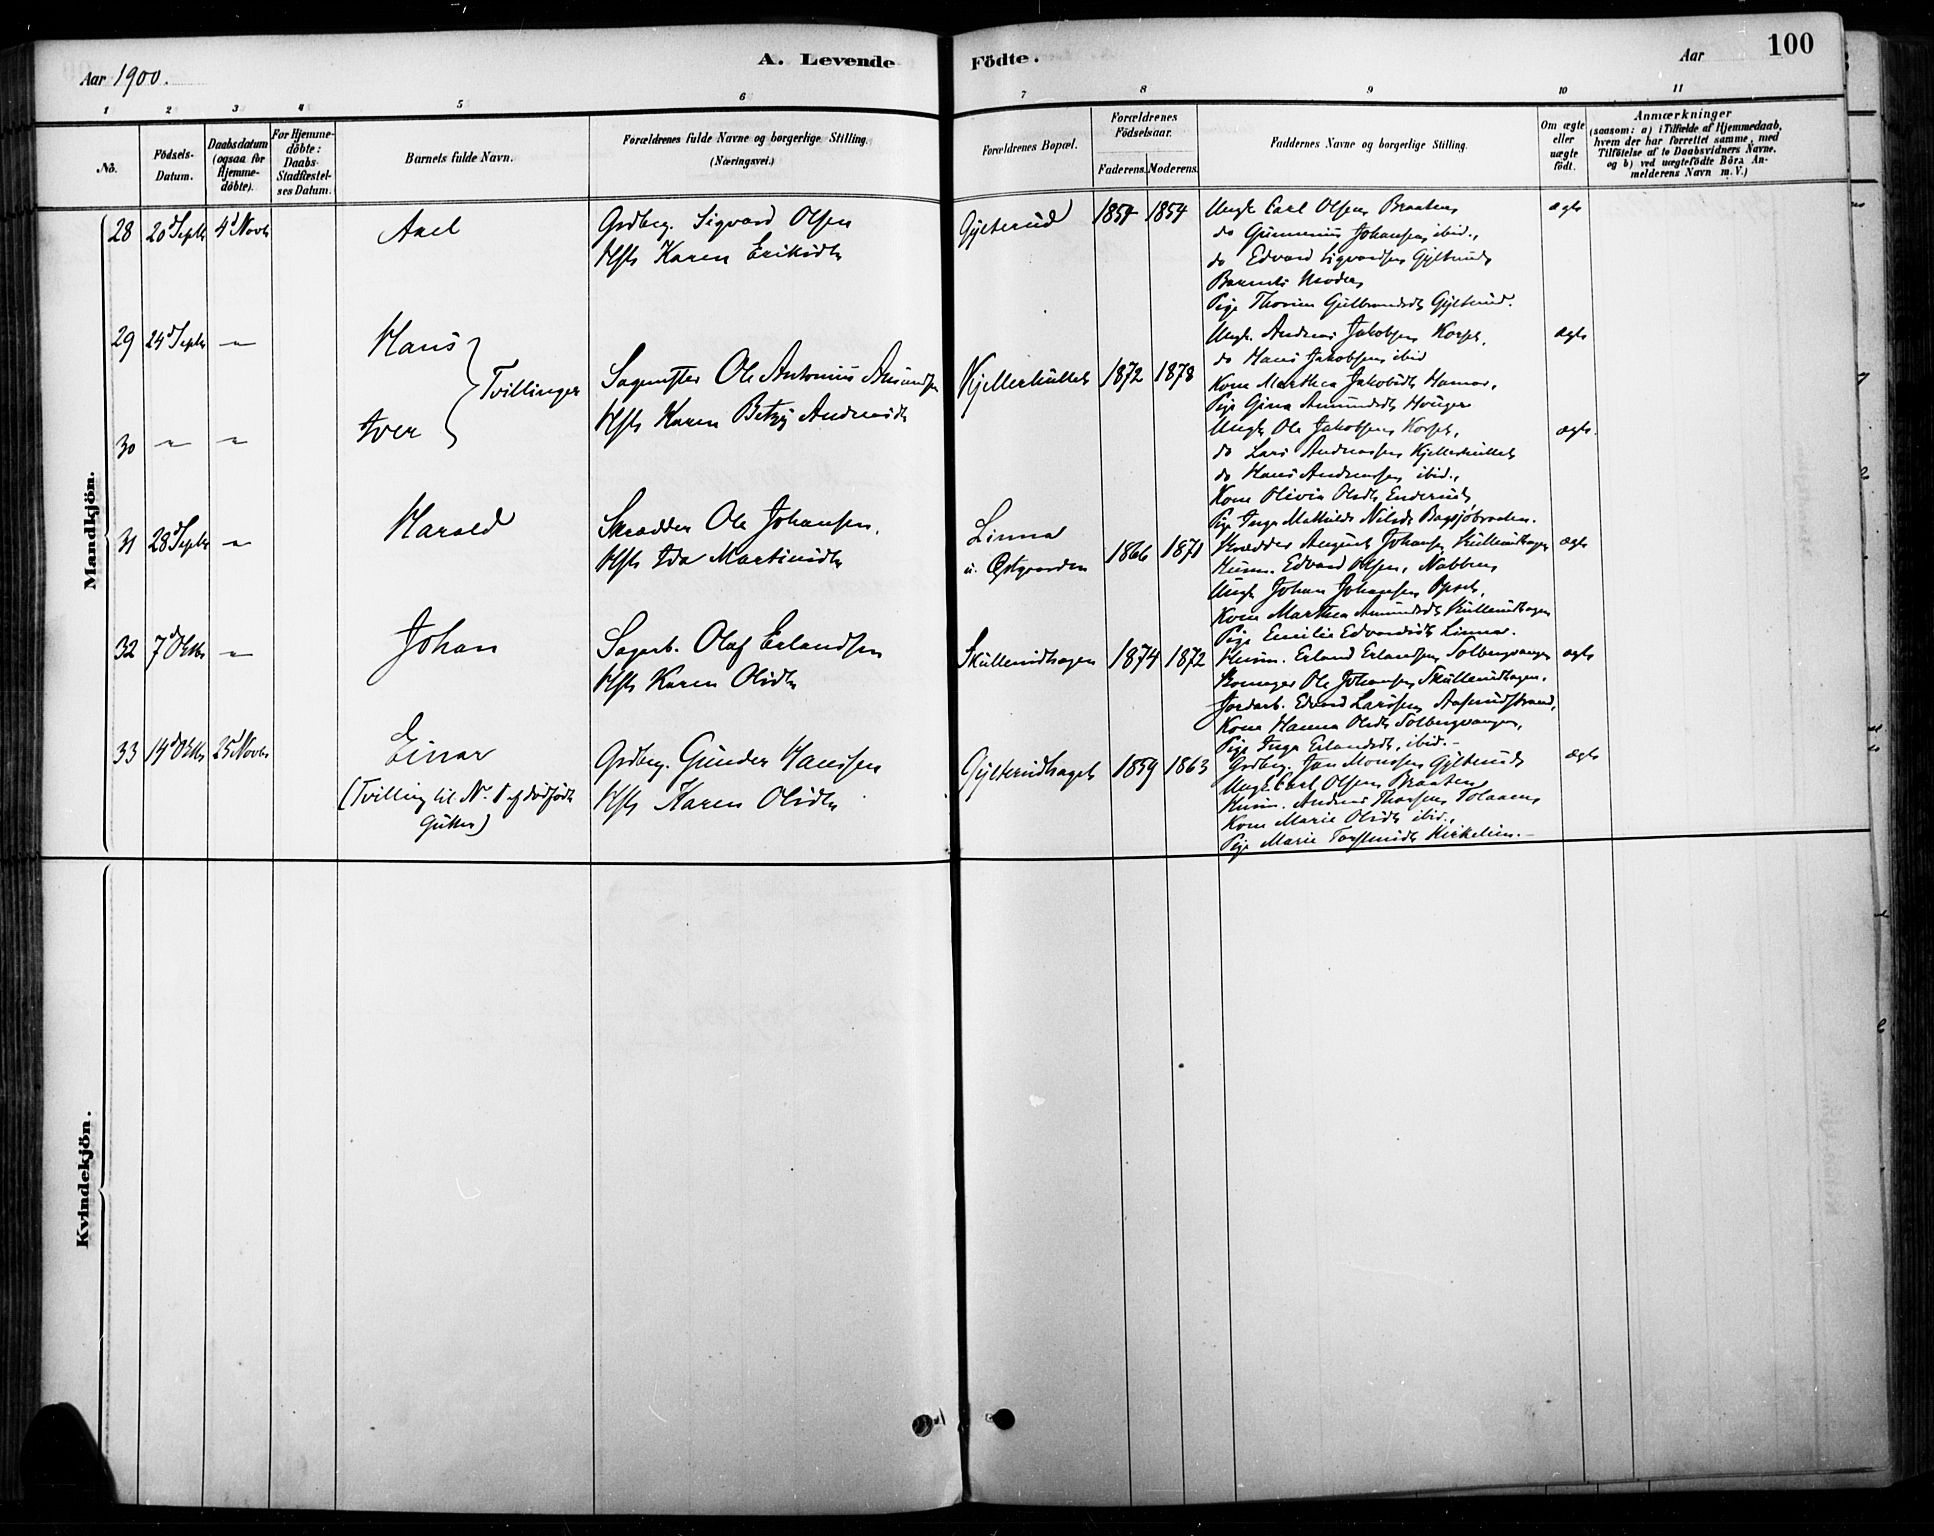 Aar 1900.
A. Levende Födte.
Aar
100
1 2 3 4 5 6 7 8 9 10 11
No.
Födsels-Datum.
Daabsdatum (ogsaa for Hjemme-döbte).
For Hjemme-döbte: Daabs-Stadfæstel-ses Datum.
Barnets fulde Navn.
Forældrenes fulde Navne og borgerlige Stilling. (Næringsvei.)
Forældrenes Bopæl.
Forældrenes Födselsaar.
Faderens. Moderens.
Faddernes Navne og borgerlige Stilling.
Om ægte eller uægte födt.
Anmærkninger
(saasom: a) i Tilfælde af Hjemmedaab,
hvem der har forrettet samme, med
Tilföielse af to Daabsvidners Navne,
og b) ved uægtefödte Börn An-
melderens Navn m. V.)
Mandkjön.
28 20d Septr 4d Novbr Axel
Grdbrg. Sigvard Olsen
Hstr Karen Eriksdtr
Gylterud 1854 1854
Ungk Carl Olsen Braaten
do Gunnerius Johansen ibid.,
do Edvard Sigvardsen Gylterud
Barnets Moder,
Pige Thorine Gulbrandsdtr Gylterud.
ægte
29 24d Septr " Hans
30 " " Iver
Tvillinger
Sagmster Ole Antonius Amundsen
Hstr Karen Betzy Andreasdtr
Kjellerhullet 1872 1878
Ungk. Andreas Jakobsen Korset,
do Hans Jakobsen ibid
Kone Marthea Jakobsdtr Hamar,
Pige Gina Amundsdtr Houger
ægte
Ungk Ole Jakobsen Korset,
do Lars Andreassen Kjellerhullet
do Hans Andreassen ibid.,
Kone Olivia Olsdtr Enderud
Pige Inga Mathilde Nilsdtr Bagsjöbraaten.
ægte.
31 28d Septr " Harald
Skrædder Ole Johansen.
Hstr Ida Martinsdtr
Linna
u. Østgaarden 1866 1871
Skrædder August Johansen Skullerudhagen
Husm. Edvard Olsen, Nabben,
Ungk Johan Johansen Opset,
Kone Marthea Amundsdtr Skullerudhagen
Pige Emilie Edvardsdtr Linna.
ægte
32 7d Oktbr " Johan
Sagarb. Olaf Erlandsen
Hstr Karen Olsdtr
Skullerudhagen 1874 1872
Husm. Erland Erlandsen Solbergvangen
Skomager Ole Johansen Skullerudhagen.
Jordarb. Edvard Larssen Aaserudstrand,
Kone Hanna Olsdtr Solbergvangen,
Pige Inga Erlandsdtr, ibid.-
ægte
33 14d Oktbr 25d Novbr Einar
(Tvilling til No. 1 af dödfödte
Gutter)
Grdbrg. Gunder Hansen
Hstr Karen Olsdtr
Gylterudhaget 1859 1863
Grdbrg. Jan Monssen Gylterud
Ungk Carl Olsen Braaten,
Husm. Andreas Thorsen Tolaaen,
Kone Marie Olsdtr ibid.,
Pige Marie Torstensdtr Kirkelien.-
ægte
Kvindekjön.